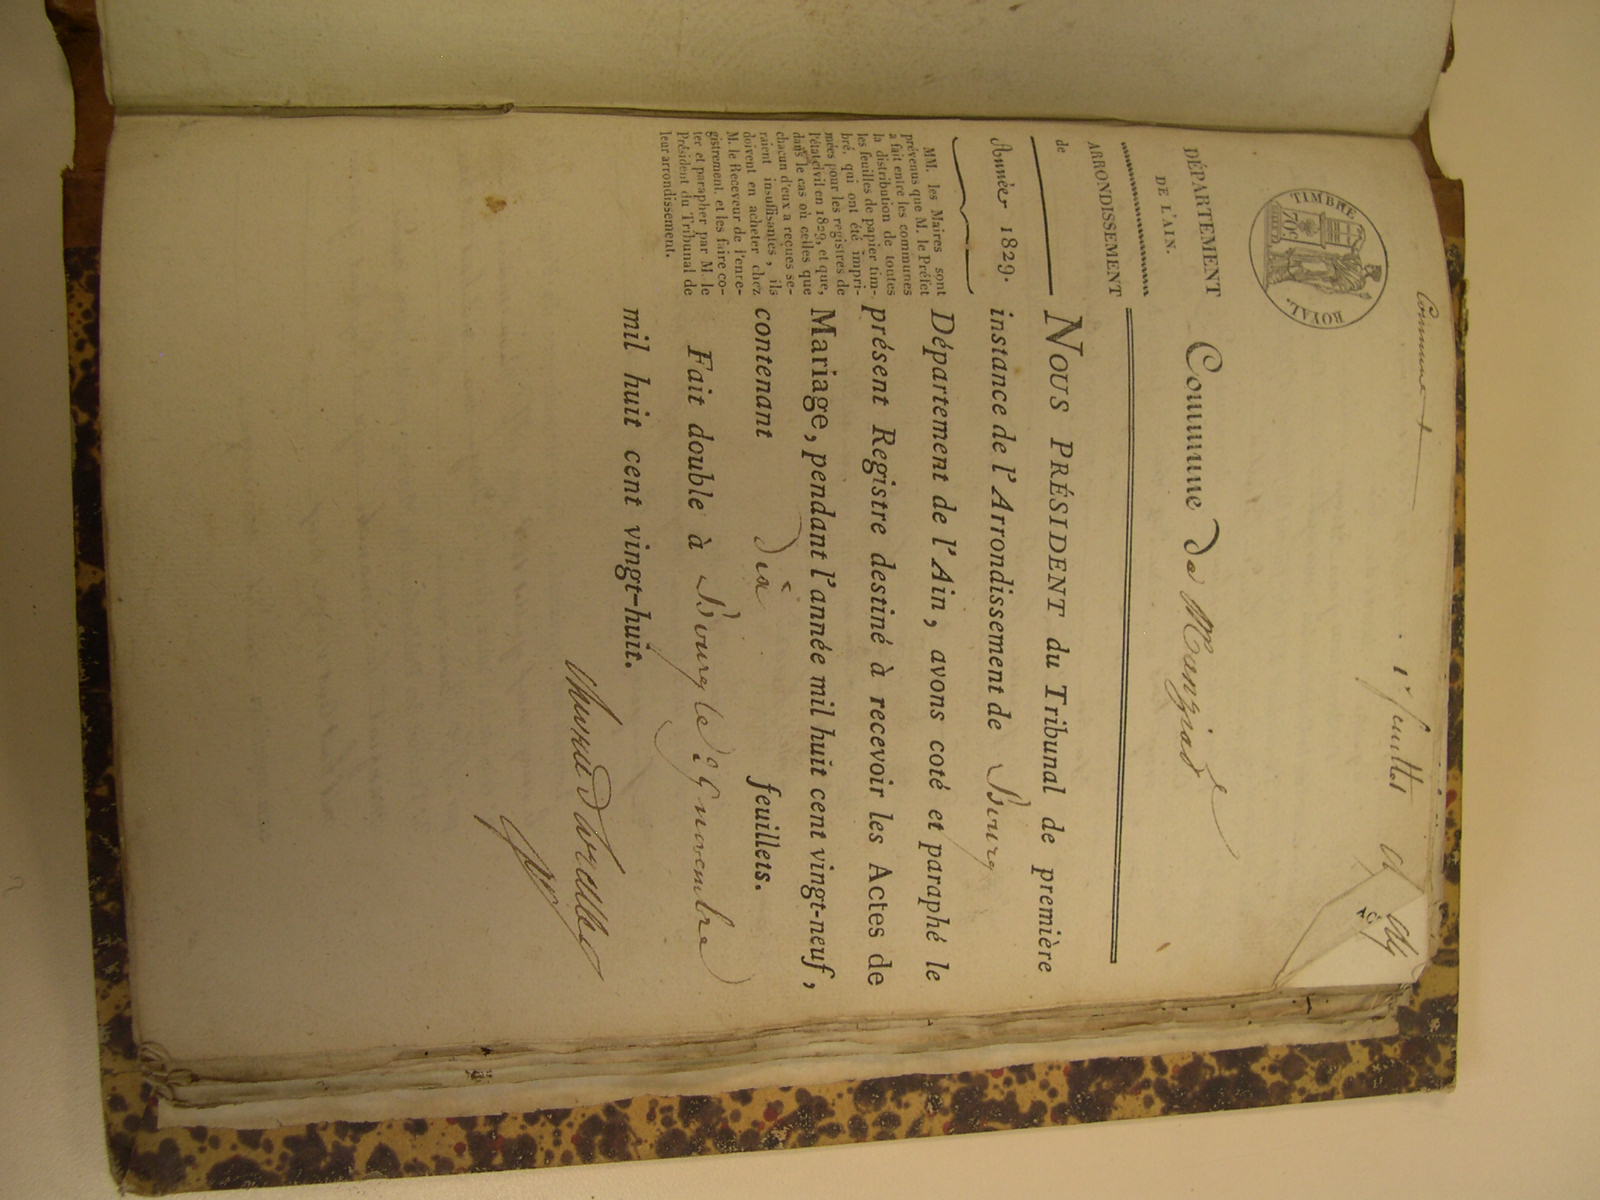 Commune
1r feuillet
TIMBRE ROYAL.
70c
DÉPARTEMENT
DE L'AIN.
Commune de Manziat
ARRONDISSEMENT
de
Année 1829.
MM. les Maires sont
prévenus que M. le Préfet
a fait entre les communes
la distribution de toutes
les feuilles de papier tim-
bré, qui ont été impri-
mées pour les registres de
l'état civil en 1829, et que,
dans le cas où celles que
chacun d'eux a reçues se-
raient insuffisantes, ils
doivent en acheter chez
M. le Receveur de l'enre-
gistrement, et les faire co-
ter et parapher par M. le
Président du Tribunal de
leur arrondissement.
NOUS PRÉSIDENT du Tribunal de première
instance de l'Arrondissement de Bourg
Département de l'Ain, avons coté et paraphé le
présent Registre destiné à recevoir les Actes de
Mariage, pendant l'année mil huit cent vingt-neuf,
contenant dix feuillets.
Fait double à Bourg le novembre
mil huit cent vingt-huit.